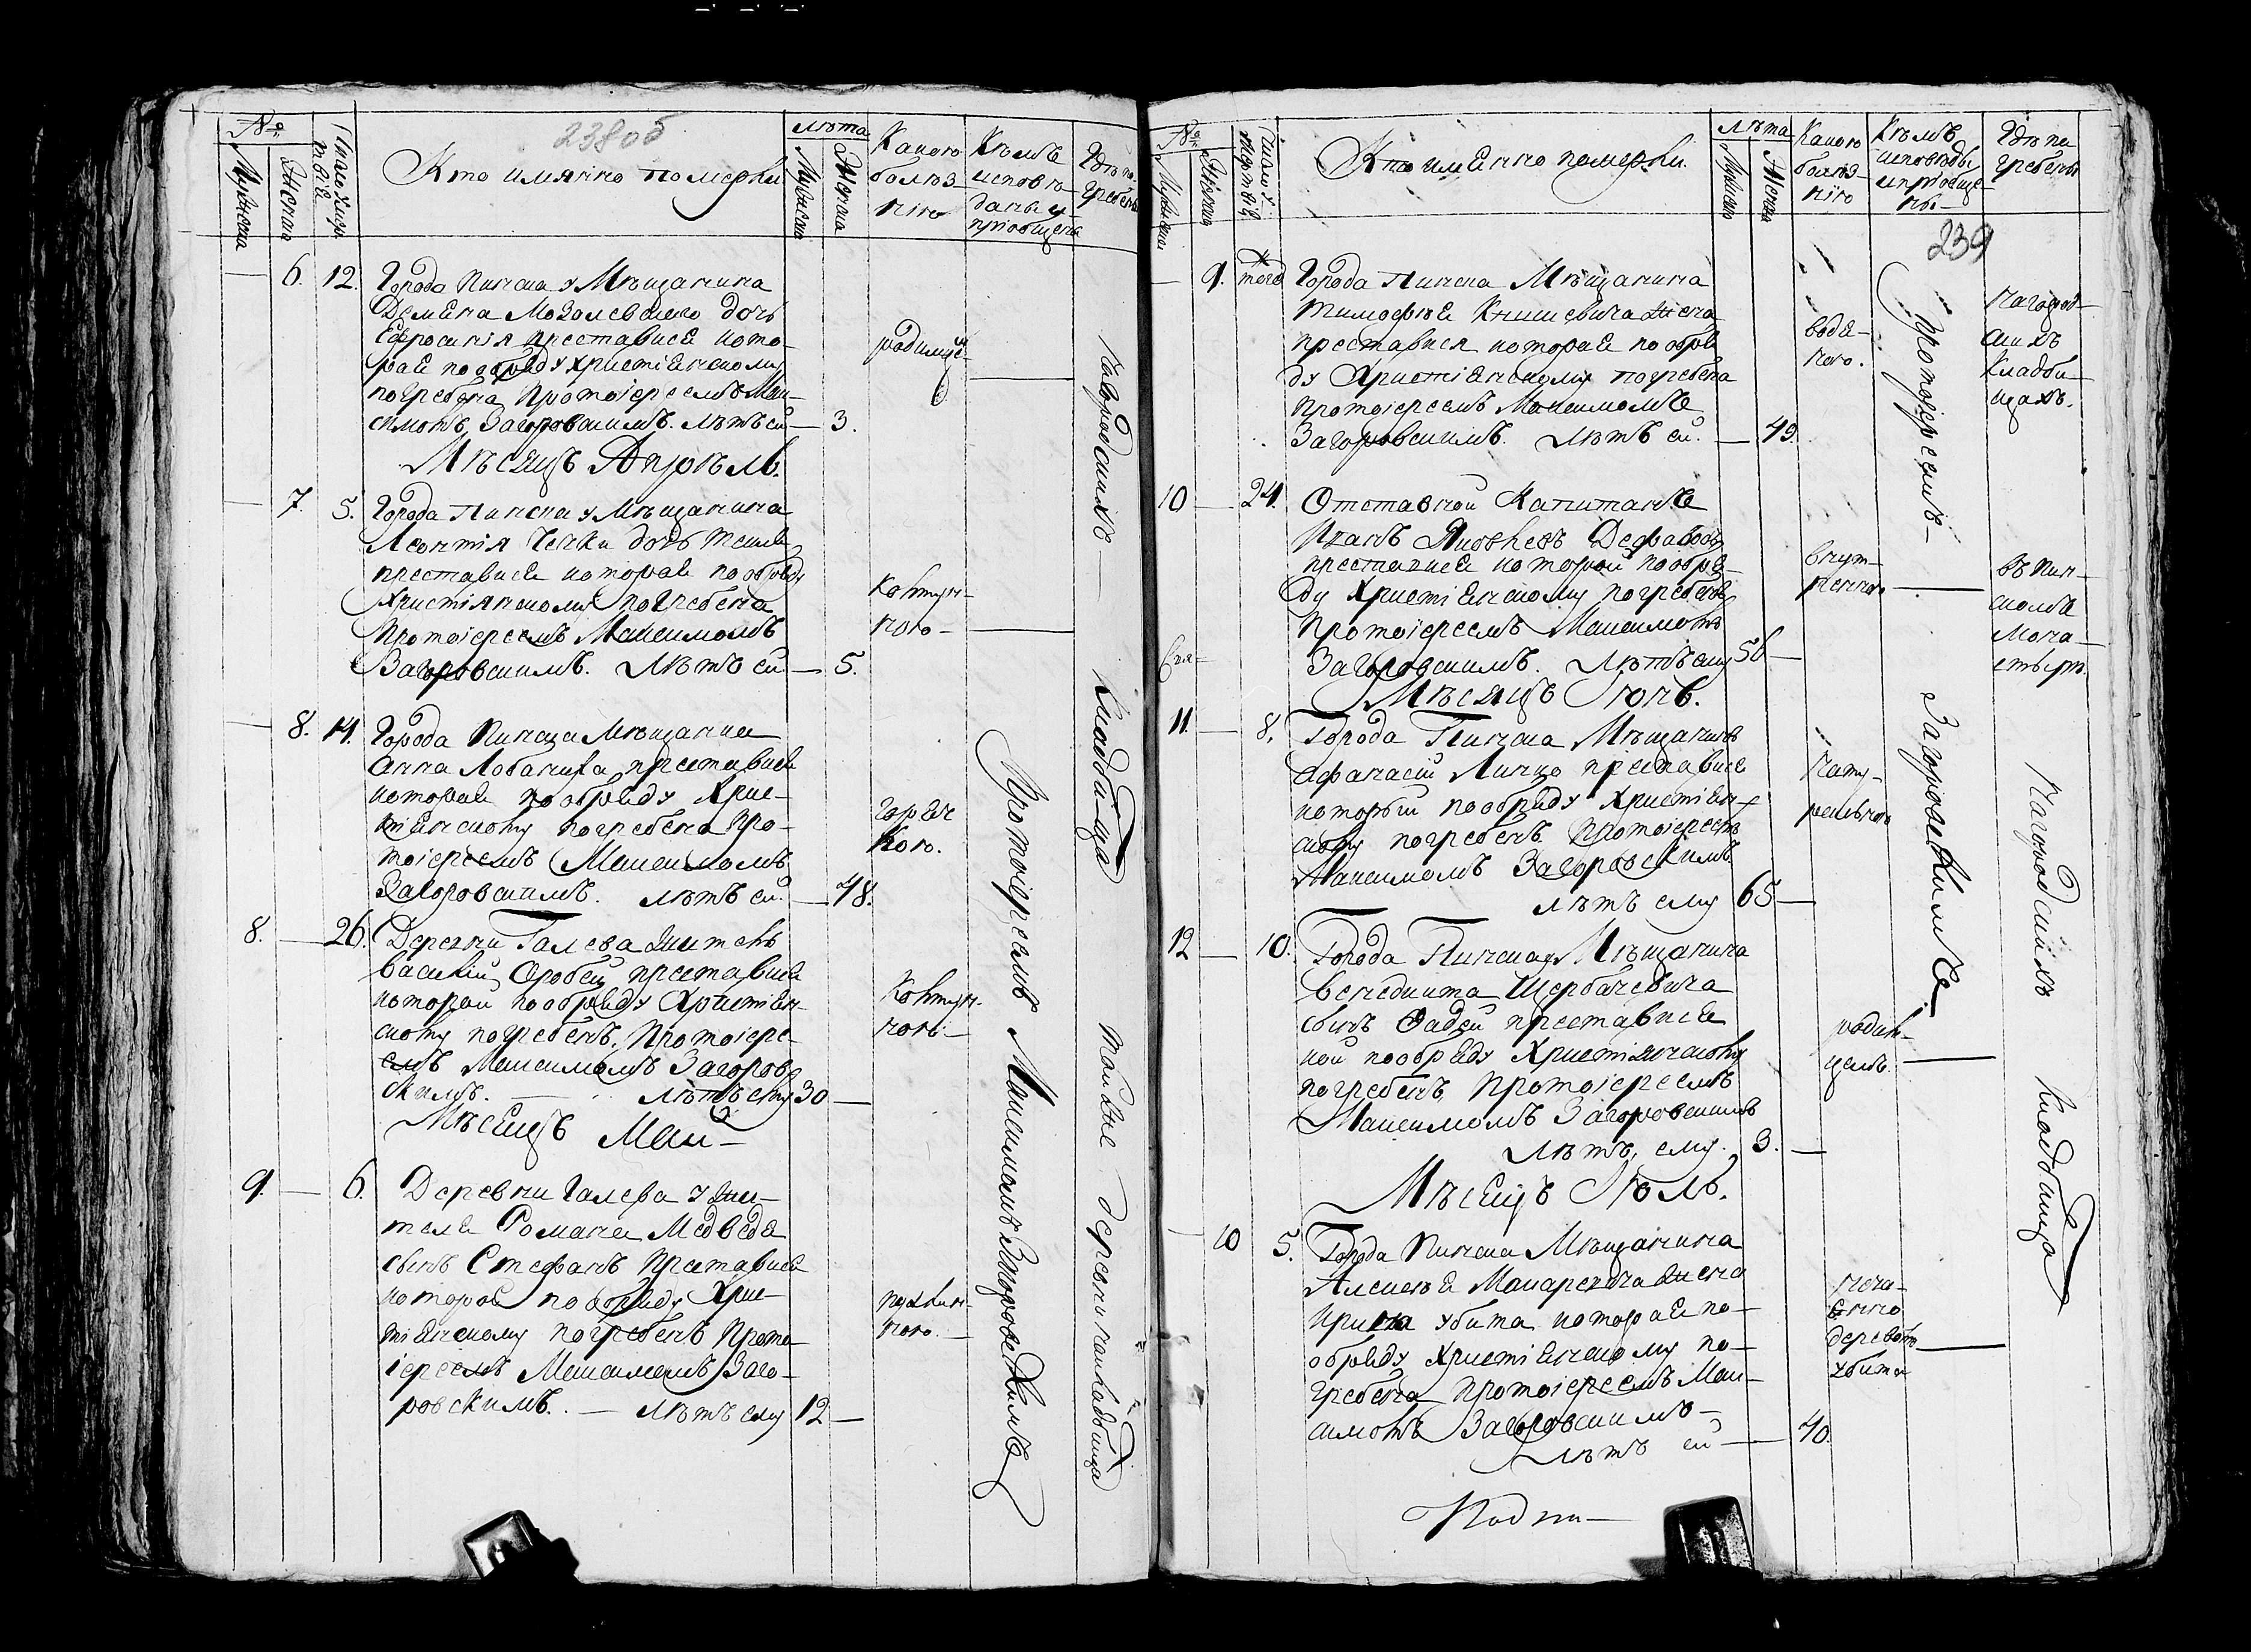 238 об
№
Мужска
Женска
Число Хиро
тогiе
Кто имянно померли
лѣта
Мужска
Женска
Какою
болѣз-
нiю
Кѣмъ
исповѣ-
даны и
прiобщены
Гдѣ по-
гребены
— 6. 12. Города Пинска у Мѣщанина
Демяна Мозолевскаго дочь
Ефросинiя преставися кото-
рая по обряду христiанскому
погребена Протоiереемъ Мак-
симомъ Загоровскимъ. лѣтъ ей — 3.
родимце
Мѣсяцъ Апрѣль.
— 7 5. Города Пинска у Мѣщанина
Леонтiя дочь Текля
преставися которая по обряду
Христiанскому погребена
Протоiереемъ Максимомъ
Загоровскимъ. Лѣтъ ей — 5.
Ковтун-
ного —
— 8. 14. Города Пинска Мѣщанка
Анна Лобаниха преставися
которая по обряду Хрис-
тiанскому погребена Про-
тоiереемъ Максимомъ
Загоровскимъ. лѣтъ ей. — 48.
Горяч
кою.
8. — 26. Деревни Галева житель
Василiй Оробей преставися
которой по обряду Христiан-
скому погребенъ Протоiере-
емъ Максимомъ Загоров-
скимъ. — лѣтъ ему 30 —
Ковтун-
ного —
Мѣсяцъ Май —
9. — 6. Деревни Галева у жи-
теля Романа Медведя
сынъ Стефанъ Преставися
которой по обряду Хрис-
тiанскому погребенъ Прото-
iереемъ Максимомъ Заго-
ровскимъ. — лѣтъ ему 12 —
пухлин-
ного. —
Протоiереемъ Максимомъ Загоровскимъ
На городскихъ Кладбища также деревни на кладбища
№
Мужска
Женска
Кто имянно померли.
лѣта
Мужска
Женска
Какою
болѣз-
нiю
Кѣмъ
исповѣды
и прiобще-
ны —
Гдѣ по
гребены
239
— 9. того Города Пинска Мѣщанина
Тимофѣя Книшевича жена
преставися которая по обря
ду Христiанскому погребена
Протоiереемъ Максимомъ
Загоровскимъ. Лѣтъ ей. — 49.
водя-
ного.
на город-
скихъ
Кладби-
щахъ.
10 — 24. Отставной Капитанъ
Иванъ Яковлевъ
преставися которой по обря-
ду Христiанскому погребенъ
Протоiереемъ Максимомъ
Загоровскимъ. Лѣтъ ему 56 —
внут-
ренною —
въ Пин-
скомъ
мона-
стырѣ.
Мѣсяцъ Iюнь.
11. — 8. Города Пинска Мѣщанинъ
Афанасiй преставися
который по обряду Христiан-
скому погребенъ Протоiереемъ
Максимомъ Загоровскимъ
лѣтъ ему 65 —
Нату-
ральною
12 — 10. Города Пинска у Мѣщанина
Венедикта Щербачевича
сынъ Фадей преставися
кой по обряду Христiанскому
погребенъ Протоiереемъ
Максимомъ Загоровскимъ
Лѣтъ ему. 3. —
родим-
цемъ. —
Мѣсяцъ Iюль.
— 10 5. Города Пинска Мѣщанина
Алексѣя Макаревича жена
Ирина убита которая по-
обряду Христiанскому по-
гребена Протоiереемъ Мак-
симомъ Загоровскимъ —
Лѣтъ ей — 40.
неча-
янно
деревомъ —
убита
Протоiереемъ — Загоровскимъ
На городскихъ кладбища
Подпи —